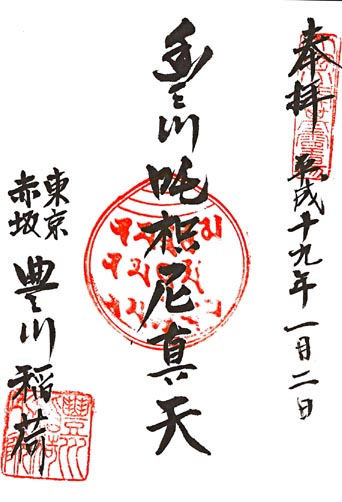 奉拝 平成十九年一月二日
豊川吒枳尼真天
東京
赤坂
豊川稲荷